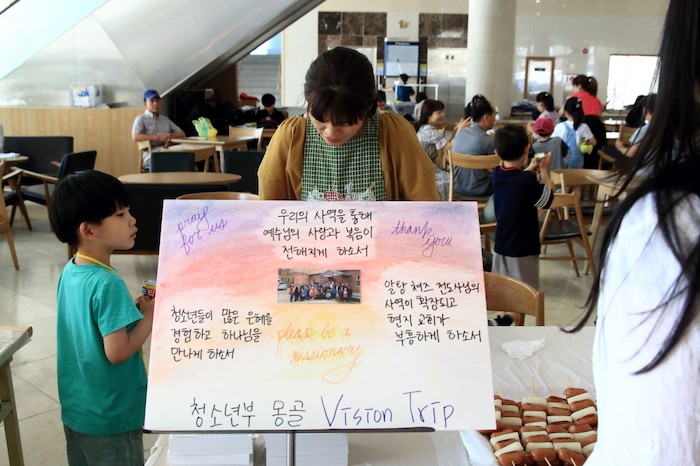 pray for us
우리의 사역을 통해
예수님의 사랑과 복음이
전해지게 하소서
thank you
청소년들이 많은 은혜를
경험하고 하나님을
만나게 하소서
please be a
missionary
알탕 체즈 전도사님의
사역이 확장되고
현지 교회가
부흥하게 하소서
청소년부 몽골 Vision Trip